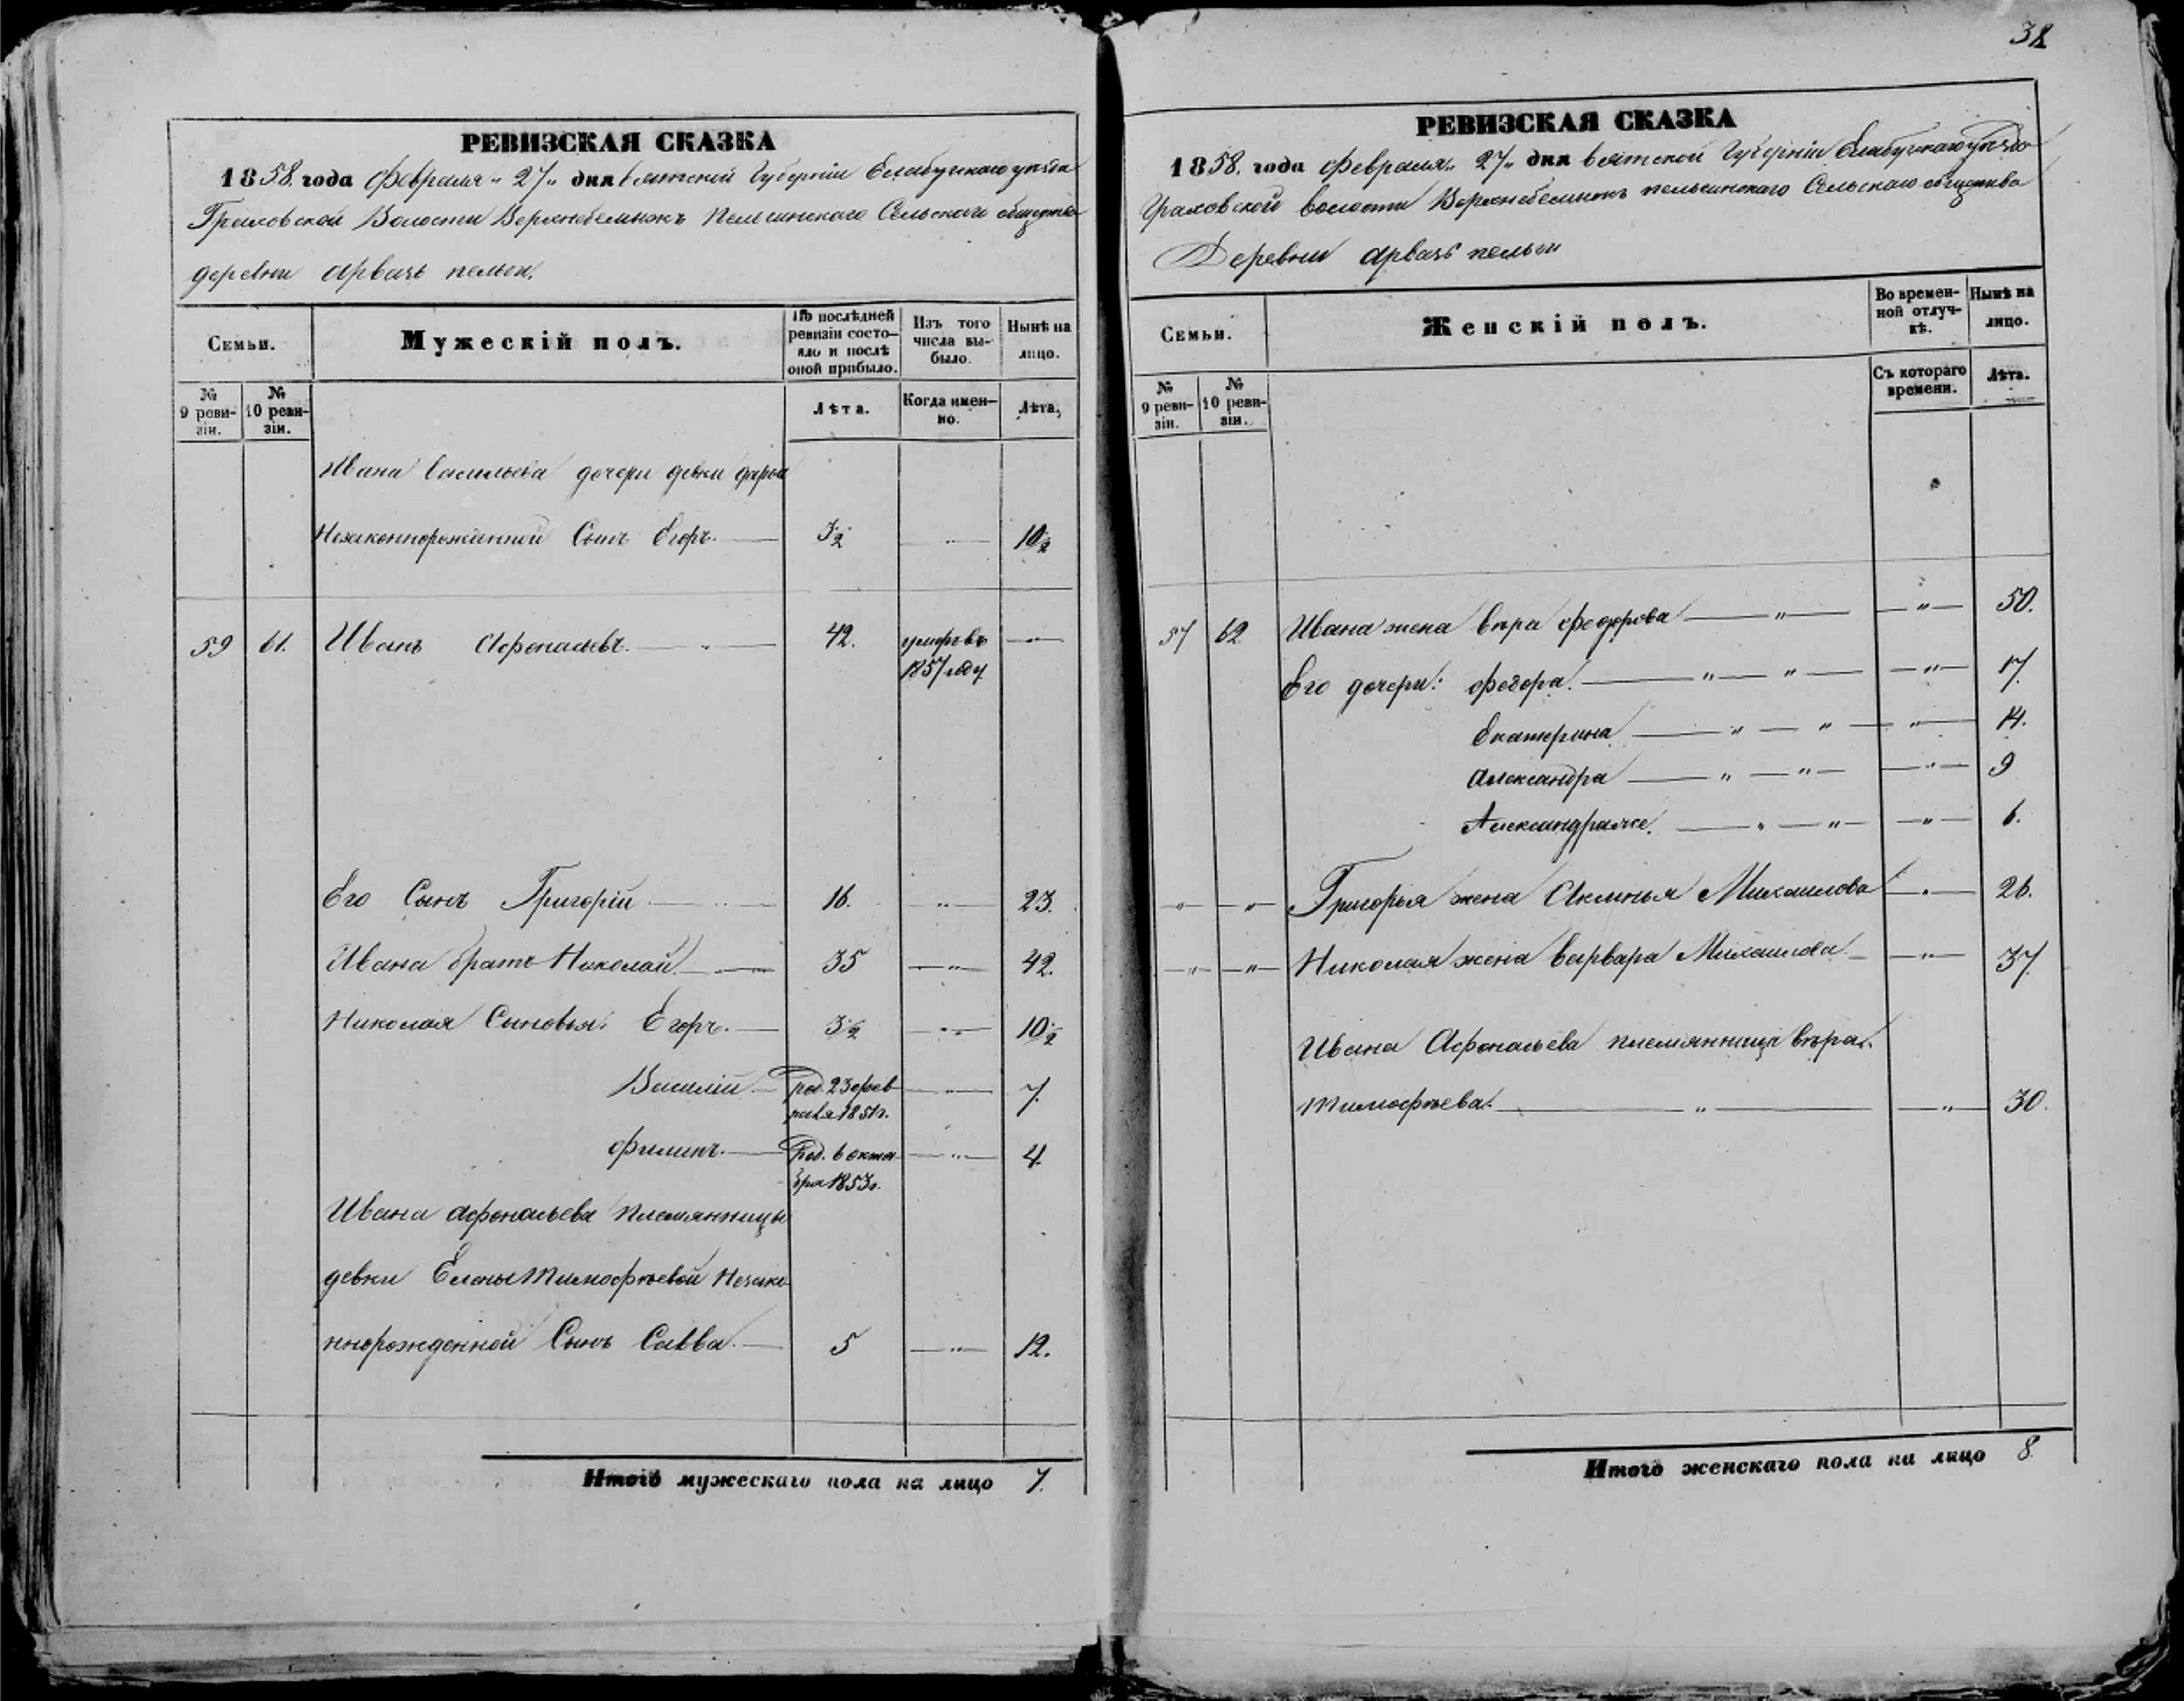 38
РЕВИЗСКАЯ СКАЗКА
1858 года февраля „27„ дня Вятской Губерніи Елабужскаго уѣзда
Граховской Волости Верхнебемыжъ Пельгинскаго Сельскаго общества
деревни Арвазь пельги.
Семьи.
Мужескій полъ.
По послѣдней ревизіи состояло и послѣ оной прибыло.
Изъ того числа выбыло.
Нынѣ на лицо.
№ 9 ревизіи.
№ 10 ревизіи.
Лѣта.
Когда именно.
Лѣта.
Ивана Васильева дочери девки дарьи
Незаконнорожденный Сынъ Егоръ. 3½ „ 10½
59 61. Иванъ Афонасьевъ. 42. умеръ въ „
1857 году
Его Сынъ Григорій 16. „ 23.
Ивана братъ Николай 35 „ 42.
Николая Сыновья: Егоръ. 3½ „ 10½
Василій Род. 23 фев „ 7.
раля 1851 г.
Филипъ. Род. 6 октя „ 4.
бря 1853 г.
Ивана Афонасьева племянницы
девки Елены Тимофѣевой Незако
ннорожденной Сынъ Савва. 5 „ 12.
Итого мужескаго пола на лицо 7.
РЕВИЗСКАЯ СКАЗКА
1858. года февраля „27„ дня Вятской Губерніи Елабужскаго уѣзда
Граховской волости Верхнебемыжъ пельгинскаго Сельскаго общества
Деревни Арвазь пельги
Семьи.
Женскій полъ.
Во временной отлучкѣ.
Нынѣ на лицо.
№ 9 ревизіи.
№ 10 ревизіи.
Съ котораго времени.
Лѣта.
57 62 Ивана жена Вѣра Федорова „ „ 50.
Его дочери: Федора. „ „ „ 17.
Екатерина „ „ „ 14.
Александра „ „ „ 9
Александра же. „ „ „ 6.
„ „ Григорья жена Акулинья Михаилова „ 26.
„ „ Николая жена Варвара Михаилова „ 37
Ивана Афонасьева племянница Вѣра
Тимофѣева. „ „ 30.
Итого женскаго пола на лицо 8.